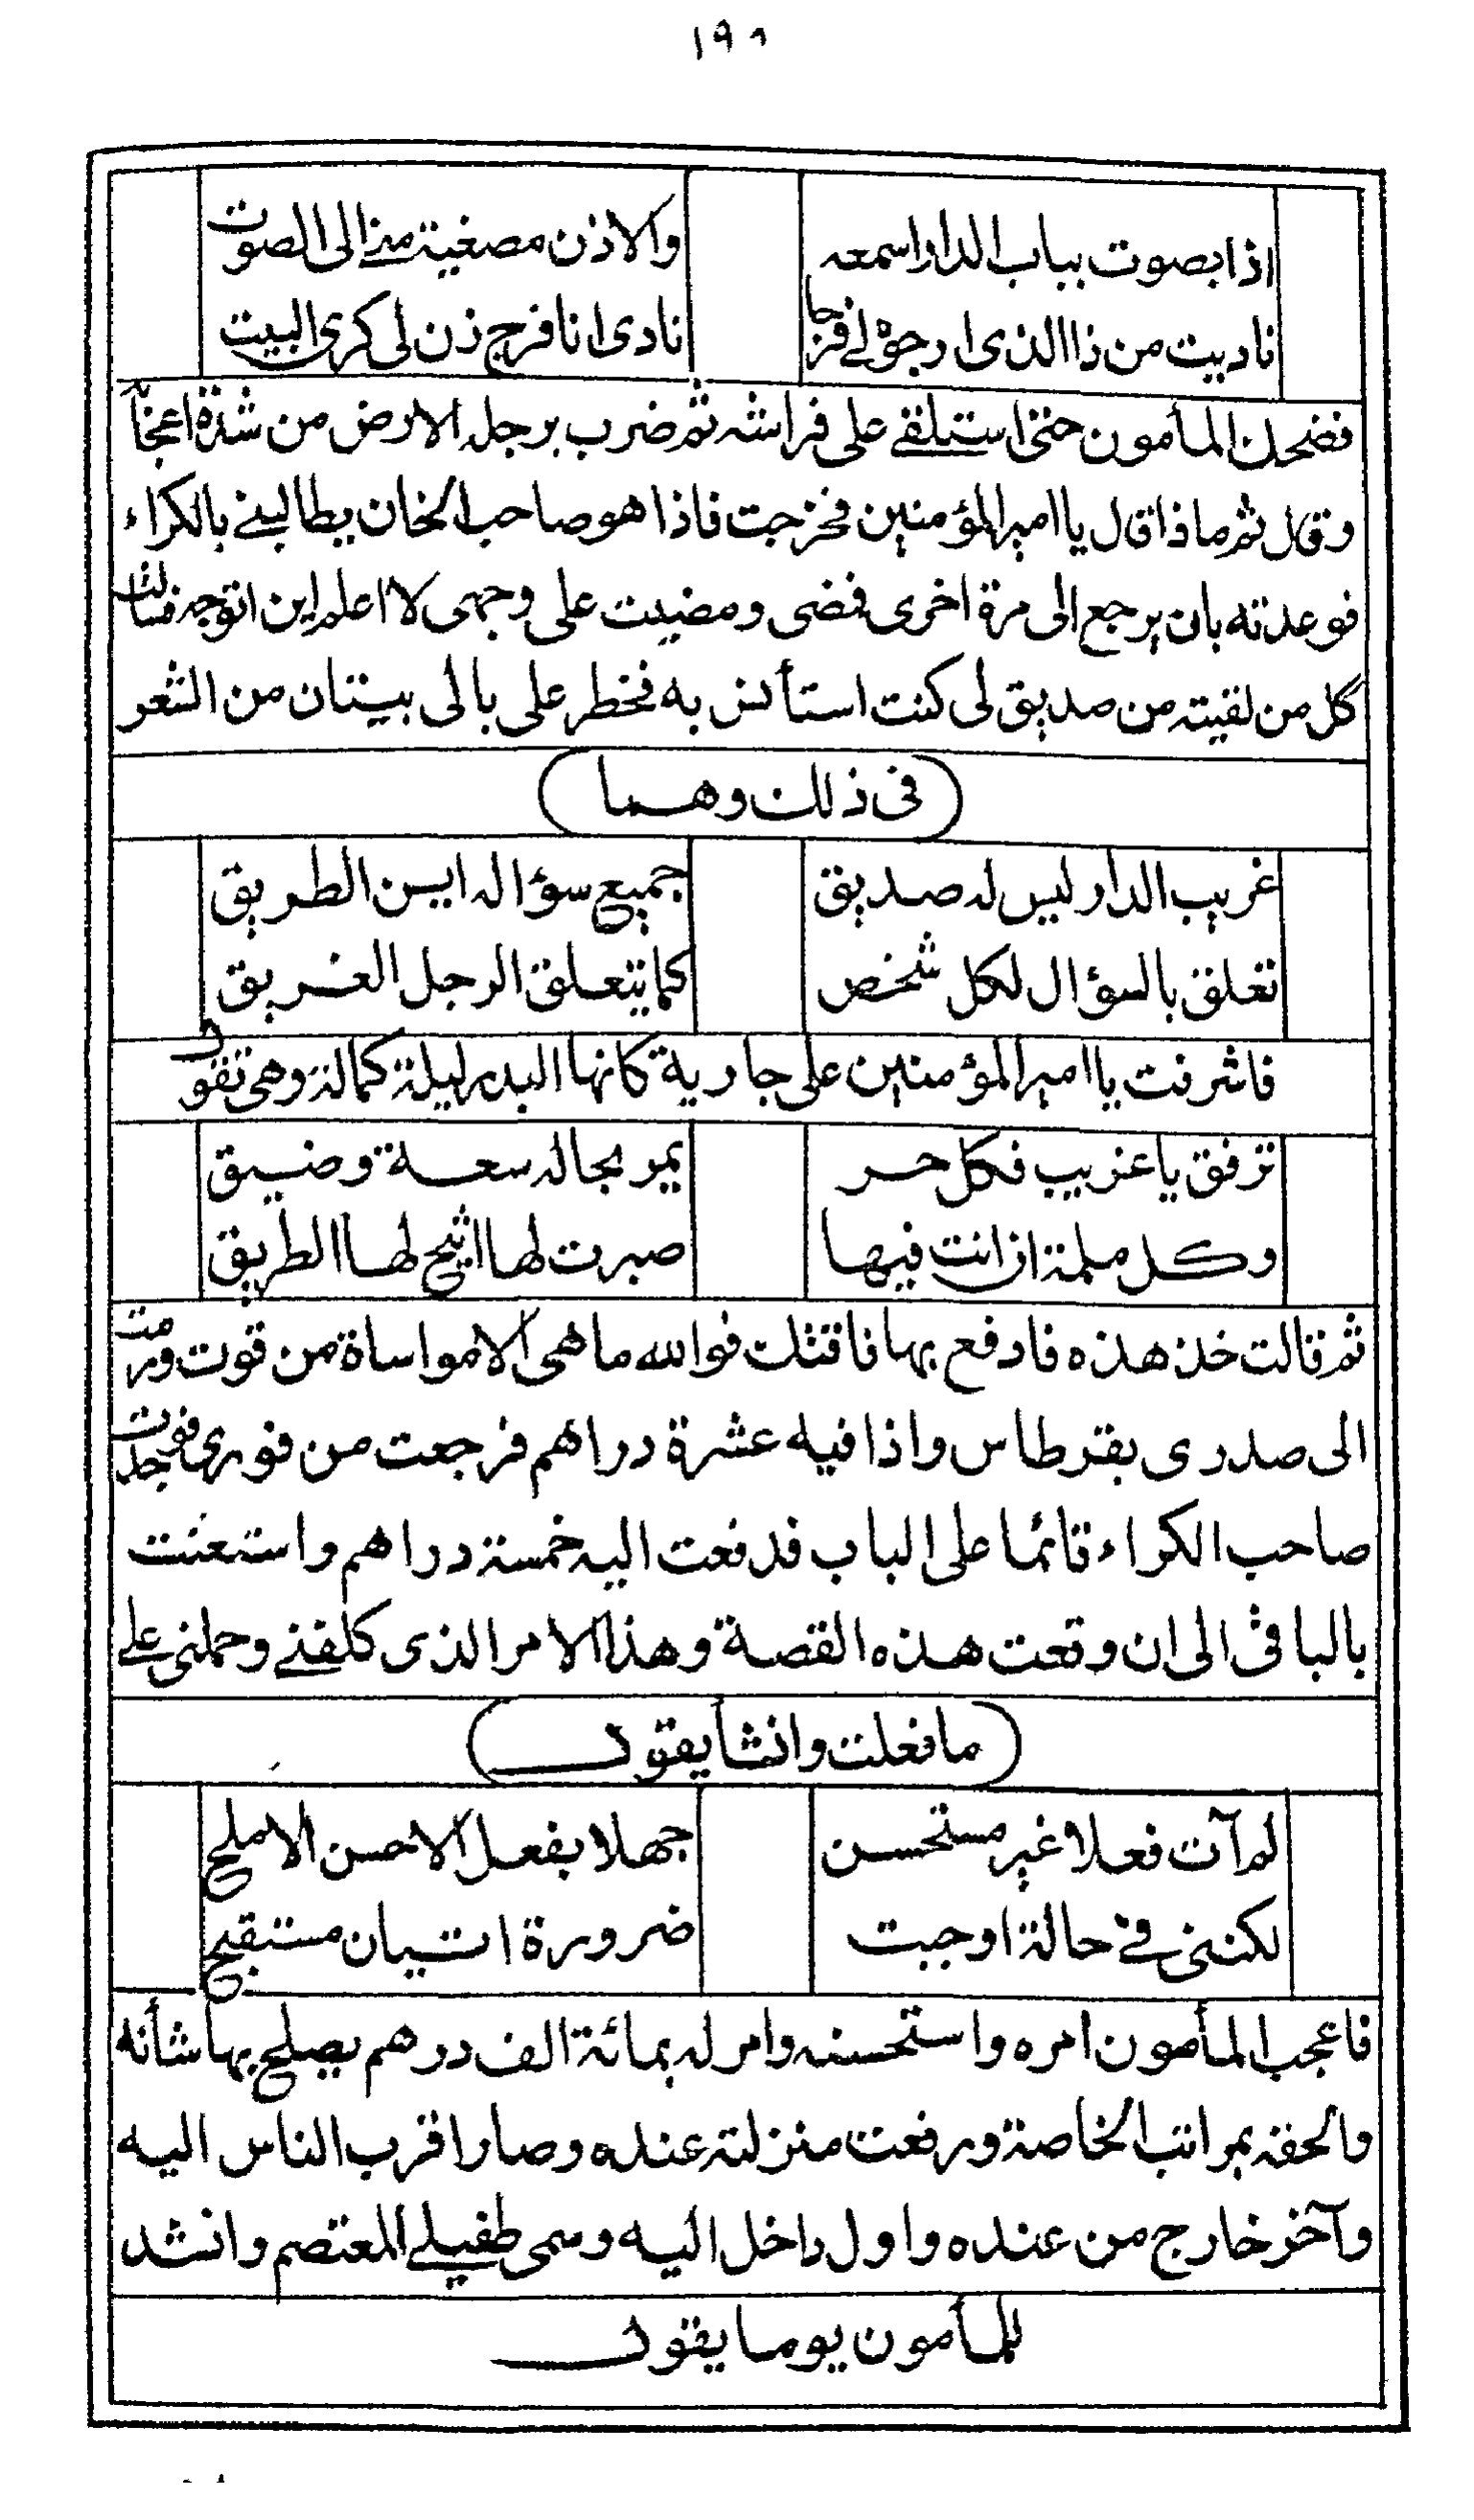 ١٩٨
اذا بصوت بباب الدار اسمعه والاذن مصغية منى الى الصوت
ناديت من ذا الذى ارجو لى فرجا نادى انا فرج زن لى كرى البيت
فضحك المأمون حتى استلقى على فراشه ثم ضرب برجله الارض من شدة اعجابه
وقال ثم ماذا قال يا امير المؤمنين فخرجت فاذا هو صاحب الخان يطالبنى بالكراء
فوعدته بان يرجع الى مرة اخرى فمضى ومضيت على وجهى لا اعلم اين اتوجه فسالت
كل من لقيته من صديق لى كنت استأنس به فخطر على بالى بيتان من الشعر
(فى ذلك وهما)
غريب الدار ليس له صديق جميع سؤاله اين الطريق
تعلق بالسؤال لكل شخص كما يتعلق الرجل الغريق
فاشرفت يا امير المؤمنين على جارية كانها البدر ليلة كماله وهى تقول
ترفق يا غريب فكل حر يمر بحاله سعة وضيق
وكل ملمة ان انت فيها صبرت لها اتيح لها الطريق
ثم قالت خذ هذه فادفع بها فاقتك فوالله ما هى الا مواساة من قوت ورمت
الى صدرى بقرطاس واذا فيه عشرة دراهم فرجعت من فورى فوجدت
صاحب الكراء قائما على الباب فدفعت اليه خمسة دراهم واستعنت
بالباقى الى ان وقعت هذه القصة وهذا الامر الذى كلفنى وحملنى على
(ما فعلت وانشأ يقول)
لم آت فعلا غير مستحسن جهلا بفعل الاحسن الاملح
لكننى فى حالة اوجبت ضرورة اتيان مستقبح
فاعجب المأمون امره واستحسنه وامر له بمائة الف درهم يصلح بها شأنه
والحقه بمراتب الخاصة ورفعت منزلته عنده وصار اقرب الناس اليه
وآخر خارج من عنده واول داخل اليه وسمى طفيلى المعتصم وانشد
للمأمون يوما يقول